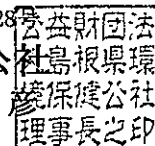 28号
公益財団法
人島根県環
境保健公社
理事長之印
公社
彦